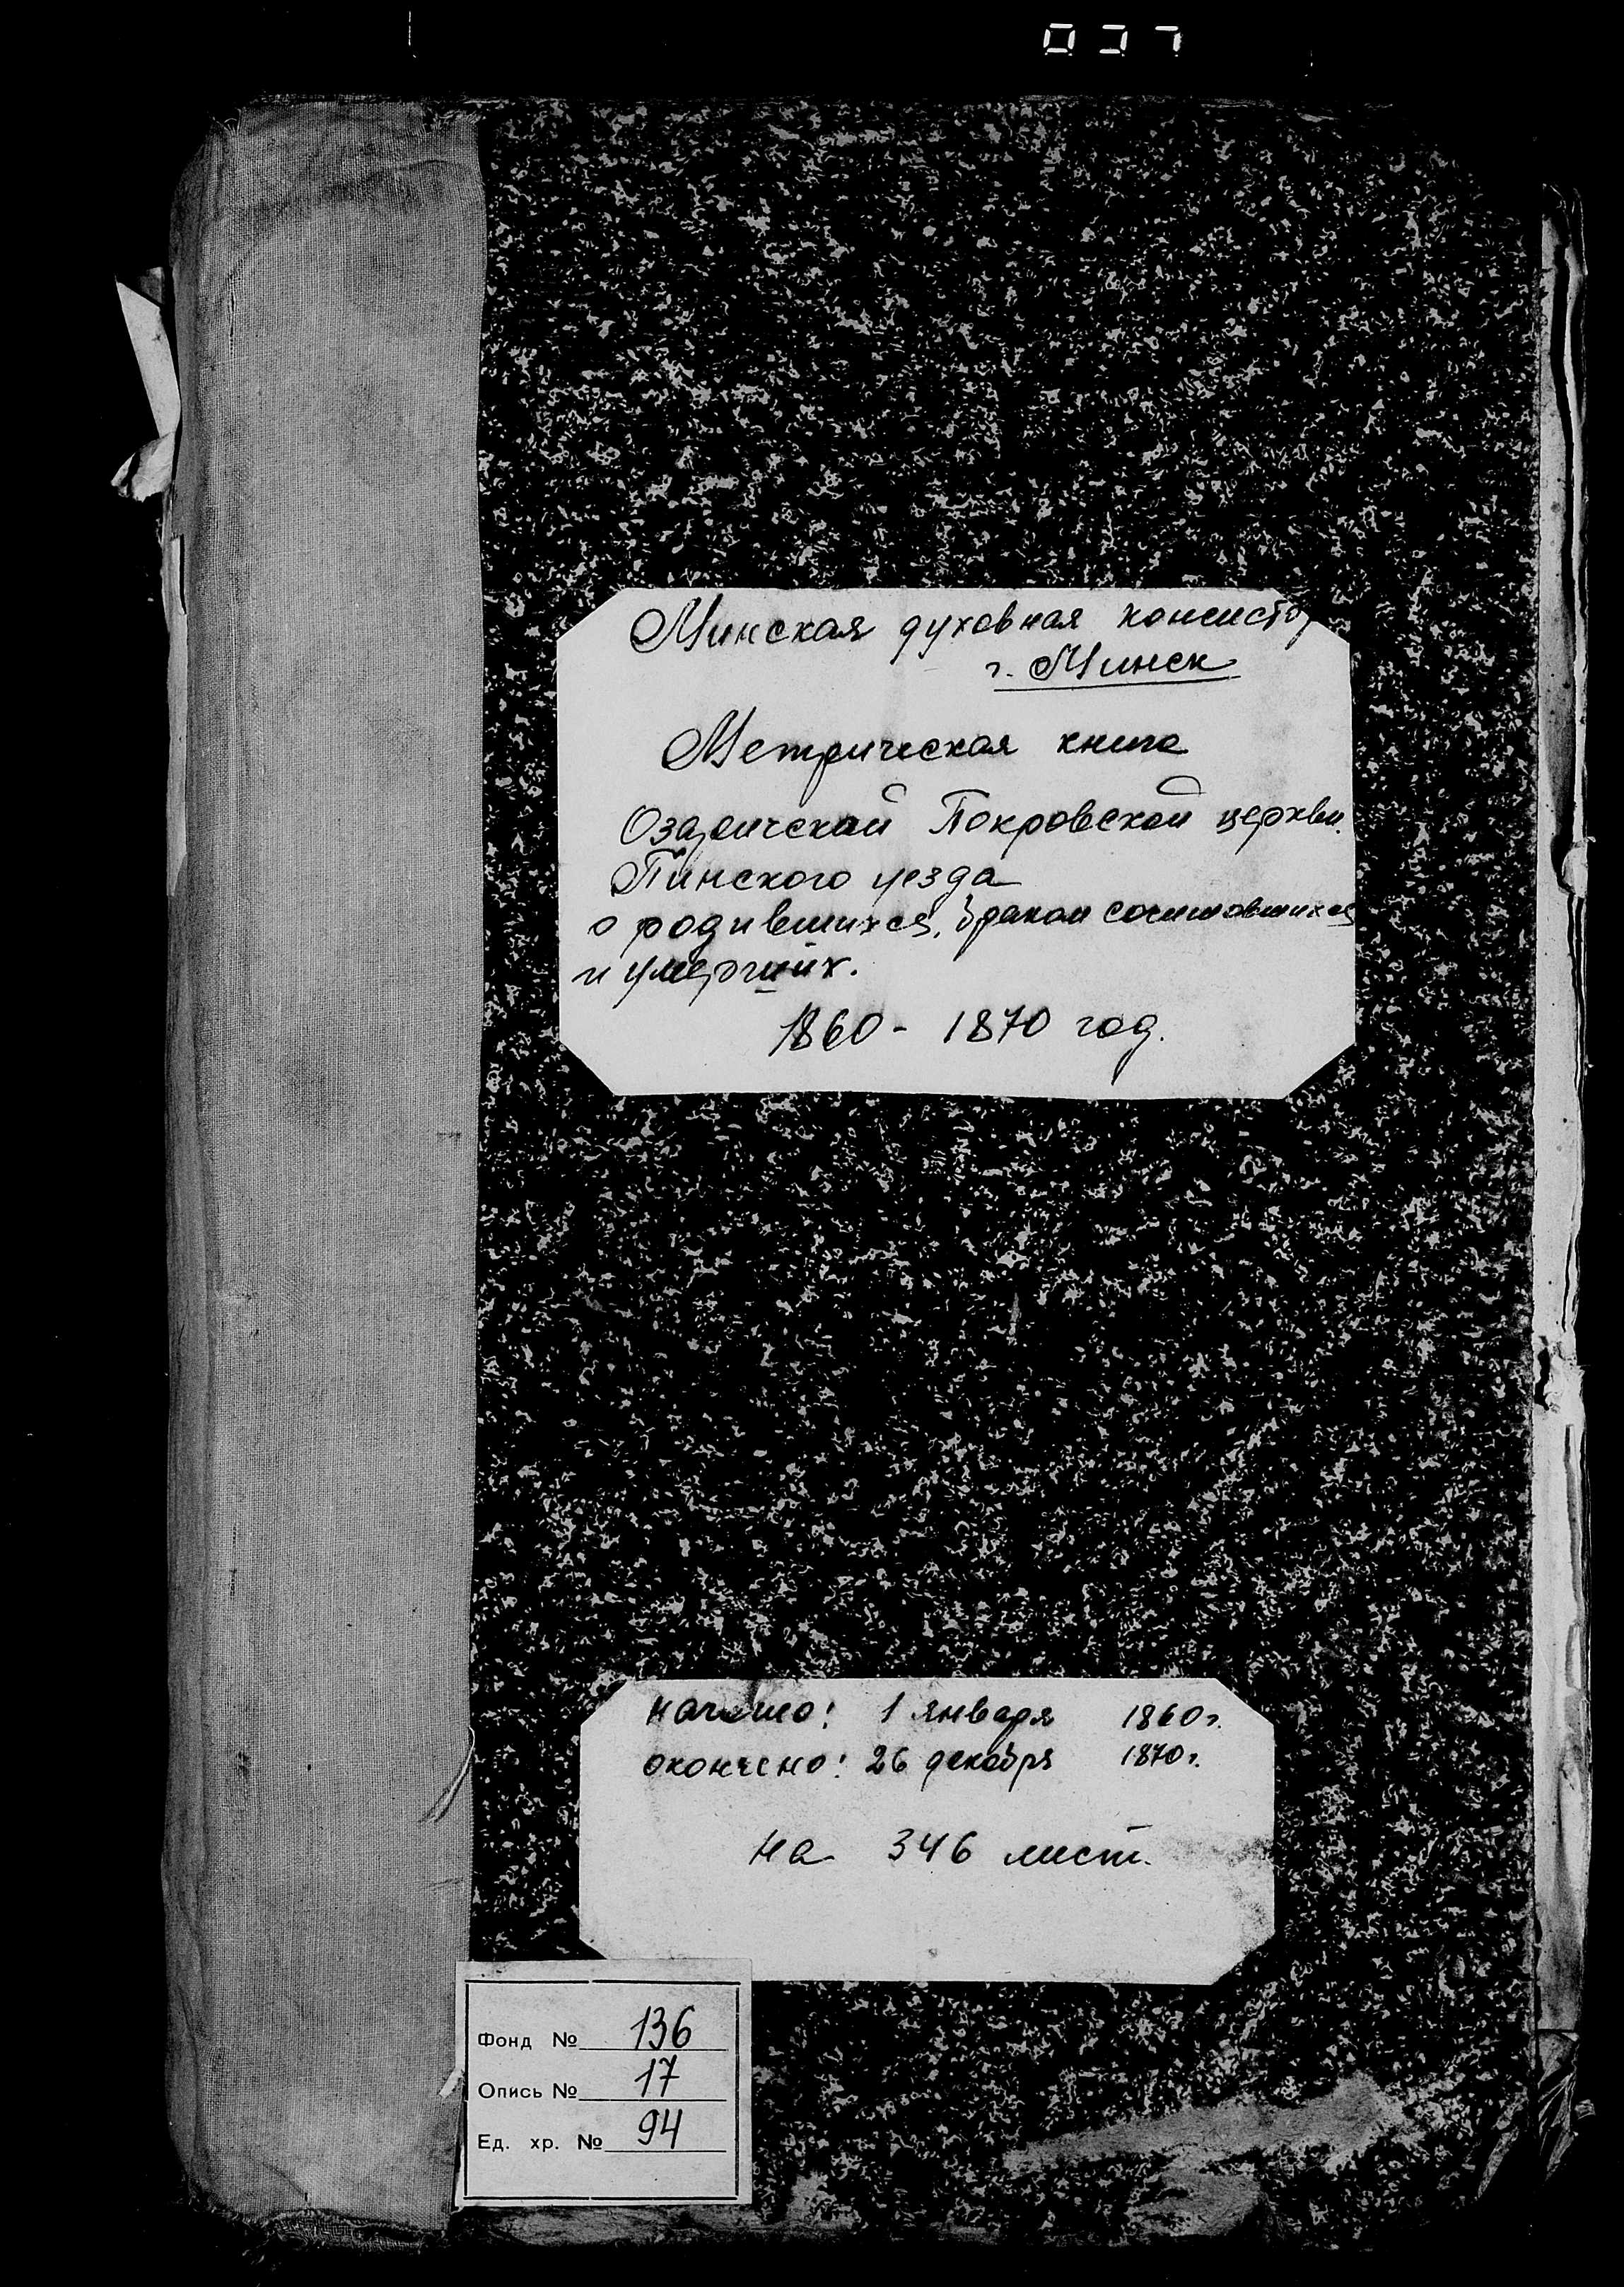 037
Минская духовная консистор
г. Минск
Метрическая книга
Озаричской Покровской церкви
Пинского уезда
о родившихся, браком сочетавшихся
и умерших.
1860 - 1870 год.
начато: 1 января 1860 г.
окончено: 26 декабря 1870 г.
на 346 лист.
Фонд № 136
Опись № 17
Ед. хр. № 94